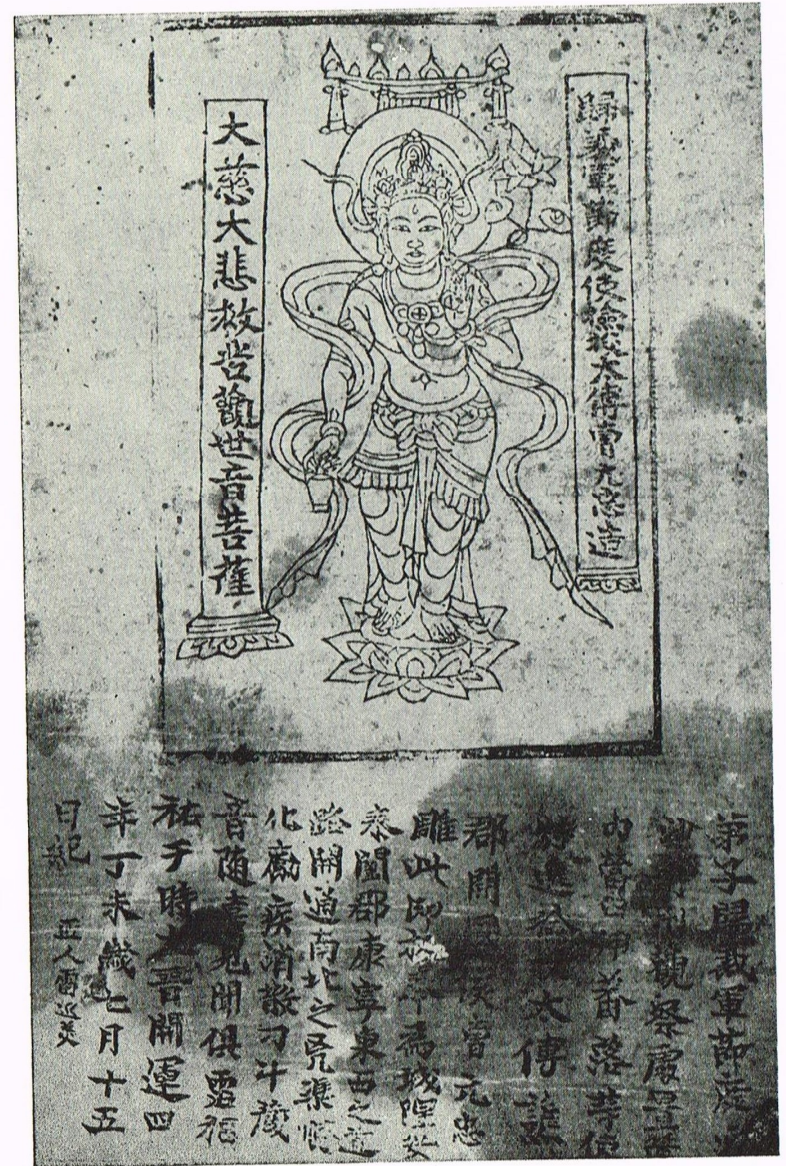 歸義軍節度使檢校太傅曹元忠造
大慈大悲救苦觀世音菩薩
弟子歸義軍節度瓜
州觀察處置
內營田押蕃落等使
特進檢校太傅譙
郡開國侯曹元忠
雕此印板奉為城隍安
泰闔郡康寧東西之道
路開通南北之兇渠順
化癘疾消散刁斗藏
音隨喜見聞俱霑福
祐于時大晉開運四
年丁未歲七月十五
日紀 匠人雷延美